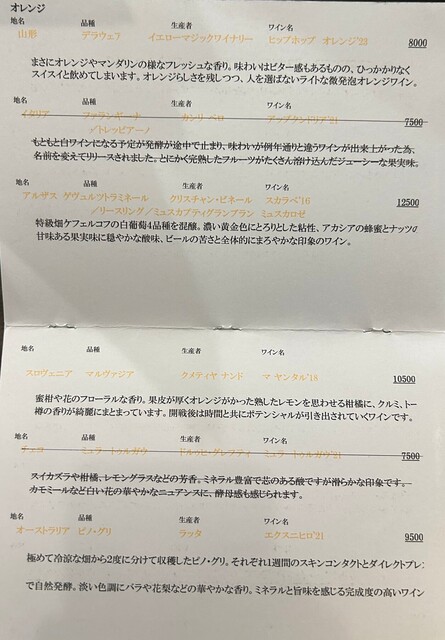 オレンジ
地名 品種 生産者 ワイン名
山形 デラウェア イエローマジックワイナリー ヒップホップ オレンジ'23 8000
まさにオレンジやマンダリンの様なフレッシュな香り。味わいはビター感もあるものの、ひっかかりなく
スイスイと飲めてしまいます。オレンジらしさを残しつつ、人を選ばないライトな微発泡オレンジワイン。
地名 品種 生産者 ワイン名
イタリア ファランギーナ カンリ・ベロ 7500
／トレッビアーノ
もともと白ワインになる予定が発酵が途中で止まり、味わいが例年通りと違うワインが出来上がった為、
名前を変えてリリースされました。とにかく完熟したフルーツがたくさん溶け込んだジューシーな果実味。
地名 品種 生産者 ワイン名
アルザス ゲヴュルツトラミネール クリスチャン・ビネール スカラベ'16 12500
／リースリング／ミュスカプティグランブラン ミュスカロゼ
特級畑ケフェルコフの白葡萄4品種を混醸。濃い黄金色にとろりとした粘性、アカシアの蜂蜜とナッツの
甘味ある果実味に穏やかな酸味、ビールの苦さと全体的にまろやかな印象のワイン。
地名 品種 生産者 ワイン名
スロヴェニア マルヴァジア クメティヤ ナンド マ ヤンタル'18 10500
蜜柑や花のフローラルな香り。果皮が厚くオレンジがかった熟したレモンを思わせる柑橘に、クルミ、トー
樽の香りが綺麗にまとまっています。開戦後は時間と共にポテンシャルが引き出されていくワインです。
地名 品種 生産者 ワイン名
チェコ ミュラー・トゥルガウ ミュラー トゥルガウ'21 7500
スイカズラや柑橘、レモングラスなどの芳香。ミネラル豊富で芯のある酸ですが滑らかな印象です。
カモミールなど白い花の華やかなニュアンスに、酵母感も感じられます。
地名 品種 生産者 ワイン名
オーストラリア ピノ・グリ ラッタ エクスニヒロ'21 9500
極めて冷涼な畑から2度に分けて収穫したピノ・グリ。それぞれ1週間のスキンコンタクトとダイレクトプレ
で自然発酵。淡い色調にバラや花梨などの華やかな香り。ミネラルと旨味を感じる完成度の高いワイン